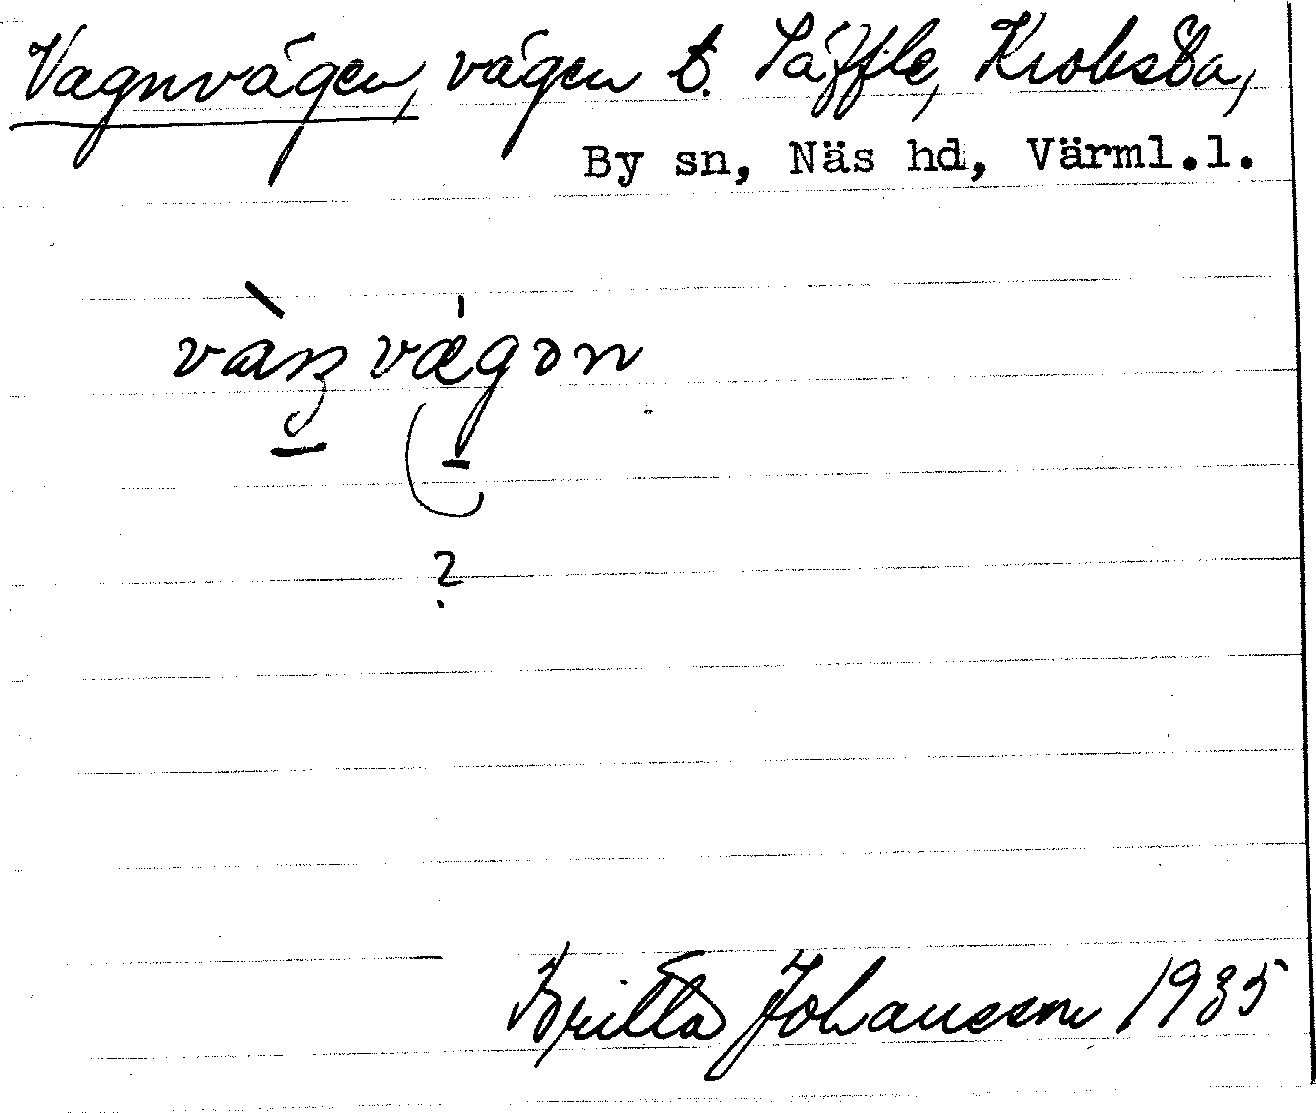 Vagnvägen, vägen t. Säffle, Krokstad,
By sn, Näs hd, Värml.l.
?
Britta Johansson 1935